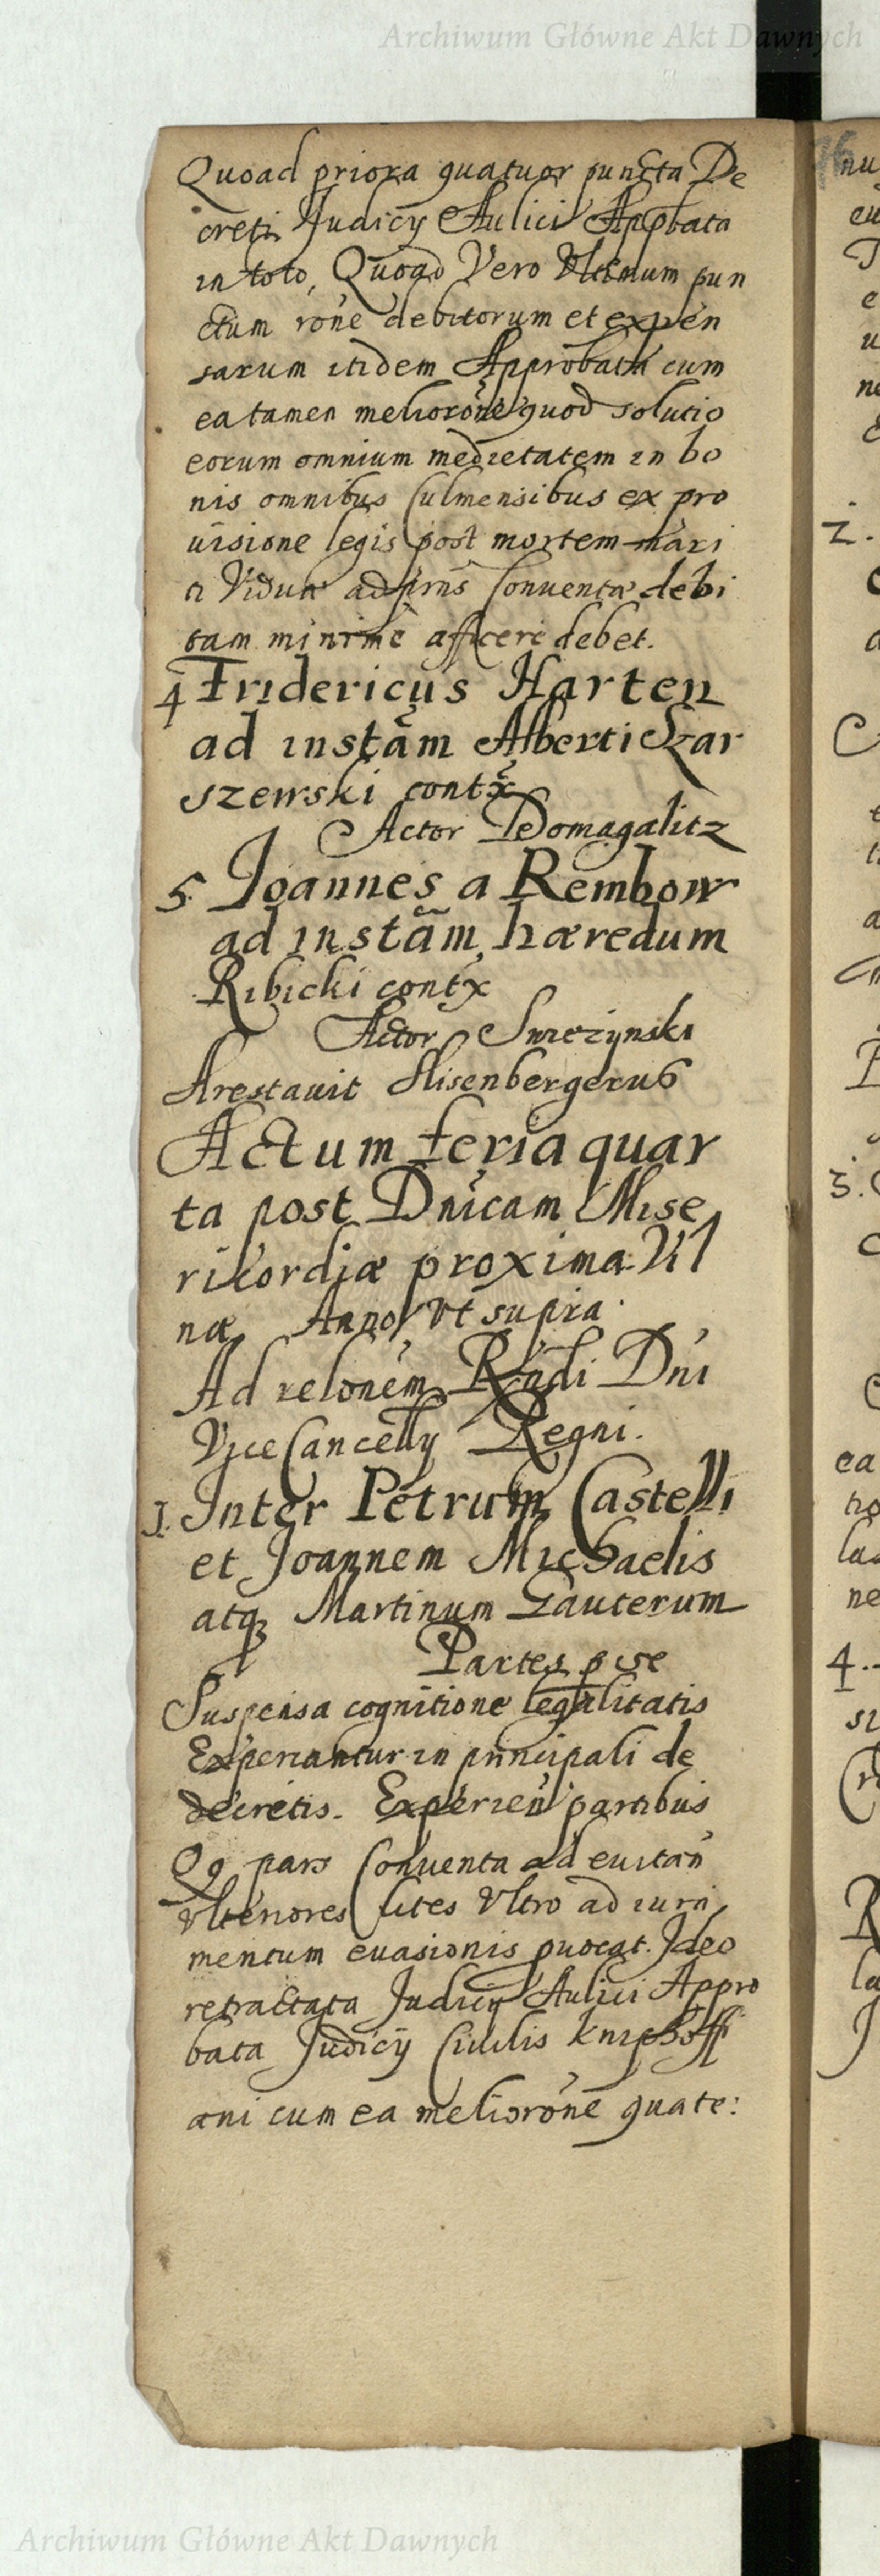 Archiwum Główne Akt Dawnych
Quoad priora quatuor puncta De
creti Judicÿ Aulici Appbata
in toto, Quoad Vero Vltimum pun
ctum rone debitorum et expen
sarum itidem Approbata cum
ea tamen meliorone quod solutio
eorum omnium medietatem in bo
nis omnibus Culmensibus ex pro
uisione legis post mortem mari
ti Viduæ ad prns Conventæ debi
tam minime afficere debet.
4 Fridericus Harten
ad instam Alberti Szar
szewski contx
Actor Domagalitz
5. Joannes a Rembow
ad instam hæredum
Ribicki contx
Actor Swiezynski
Arestauit Hisenbergerus
Actum feria quar
ta post Dnicam Mise
ricordiæ proxima Vil
næ Anno vt supra.
Ad relonem Rndi Dni
Vice Cancellÿ Regni.
1. Inter Petrum Castelli
et Joannem Michaelis
atq3 Martinum Lauterum
Partes p se
Suspensa cognitione legalitatis
Experiantur in principali de
decretis. Experien partibus
Qq pars Conventa ad euitan
vlteriores lites vltro ad iura
mentum euasionis puocat. Ideo
retractata Judicÿ Aulici Appro
bata Judicÿ Ciuilis Kniphoffi
ani cum ea meliorone quate:
16
2.
3.
4.
Archiwum Główne Akt Dawnych